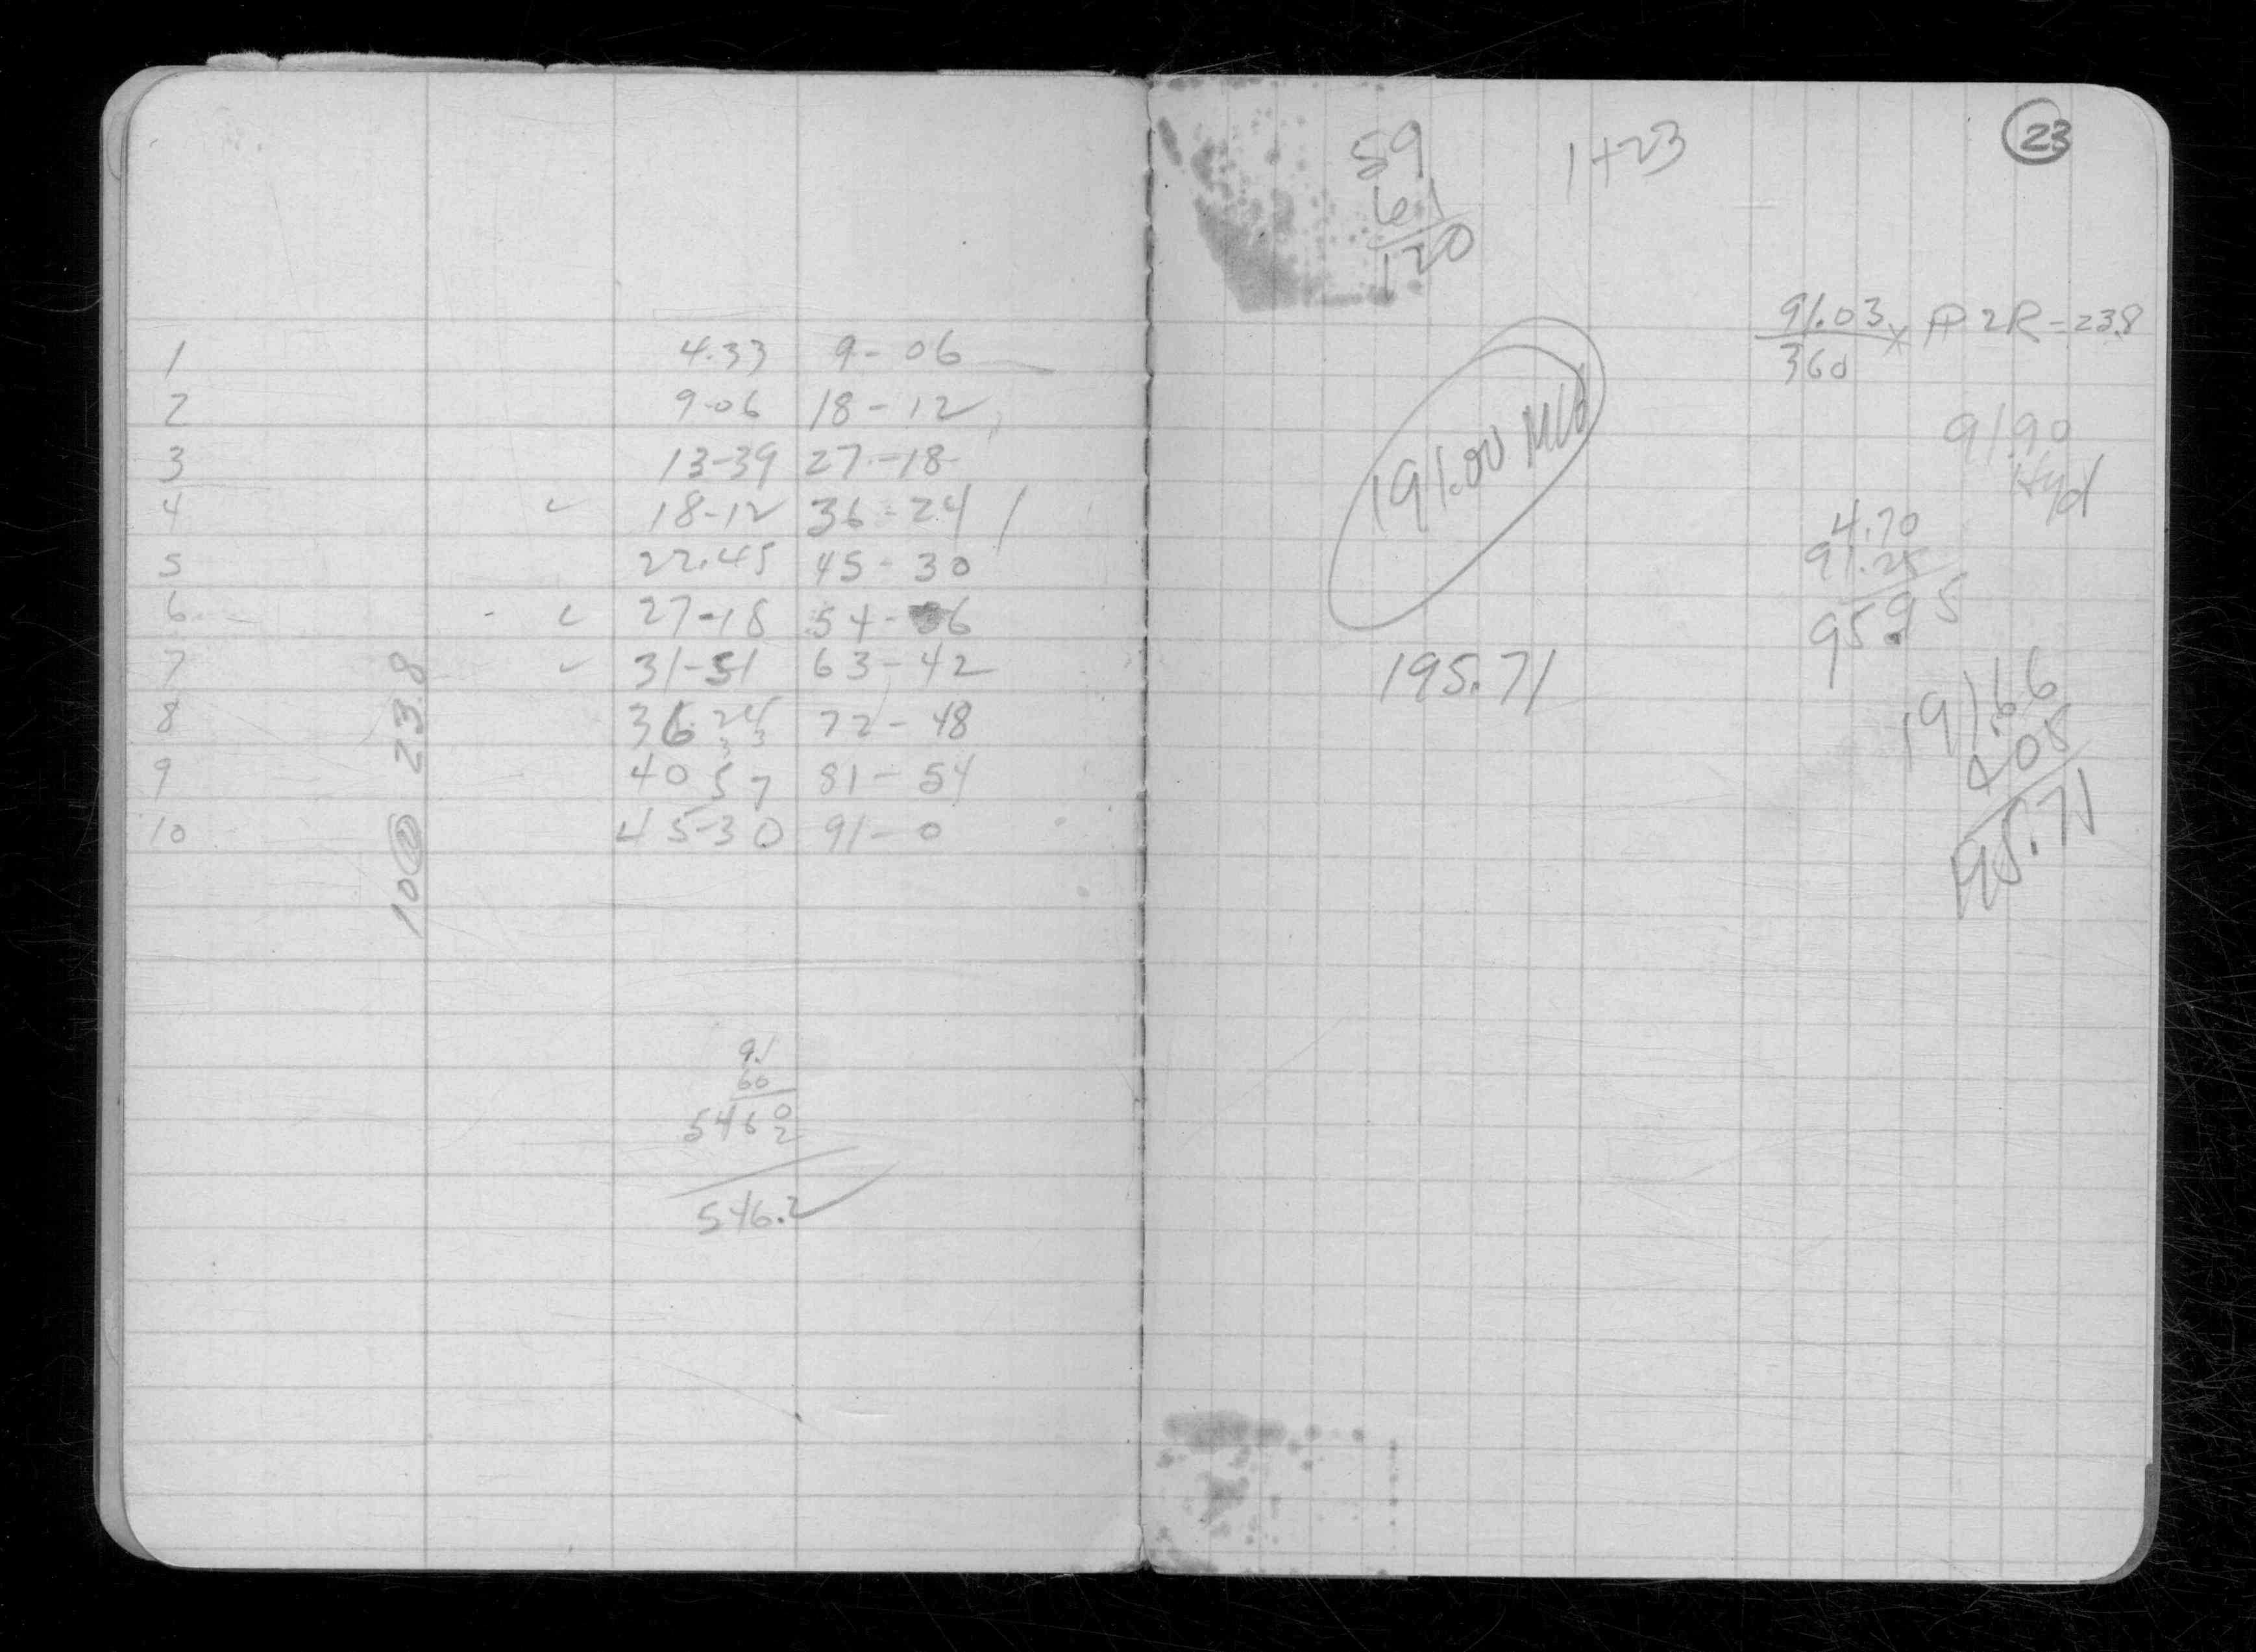 1 4.33 9-06
2 9-06 18-12
3 13-39 27-18
4 ✓ 18-12 36-24
5 22.45 45-30
6 ✓ 27-18 54-36
7 ✓ 31-51 63-42
8 36.24 72-48
9 40 57 81-54
10 45-30 91-0
10@ 23.8
91
60
5460
2
546.2
23
59
61
120
1+23
91.03 x 2R = 23.8
360
191.00
91.90
Hyd
4.70
91.25
95.95
195.71
191.66
4.05
195.71